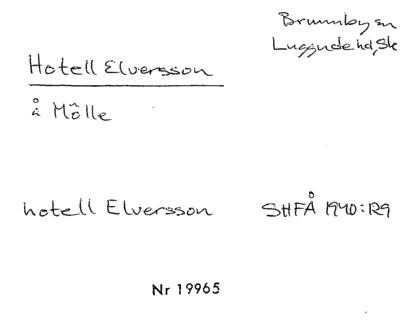 Brunnby sn
Luggude hd, Sk
Hotell Elversson
å Mölle
hotell Elversson SHFÅ 1940:129
Nr 19965